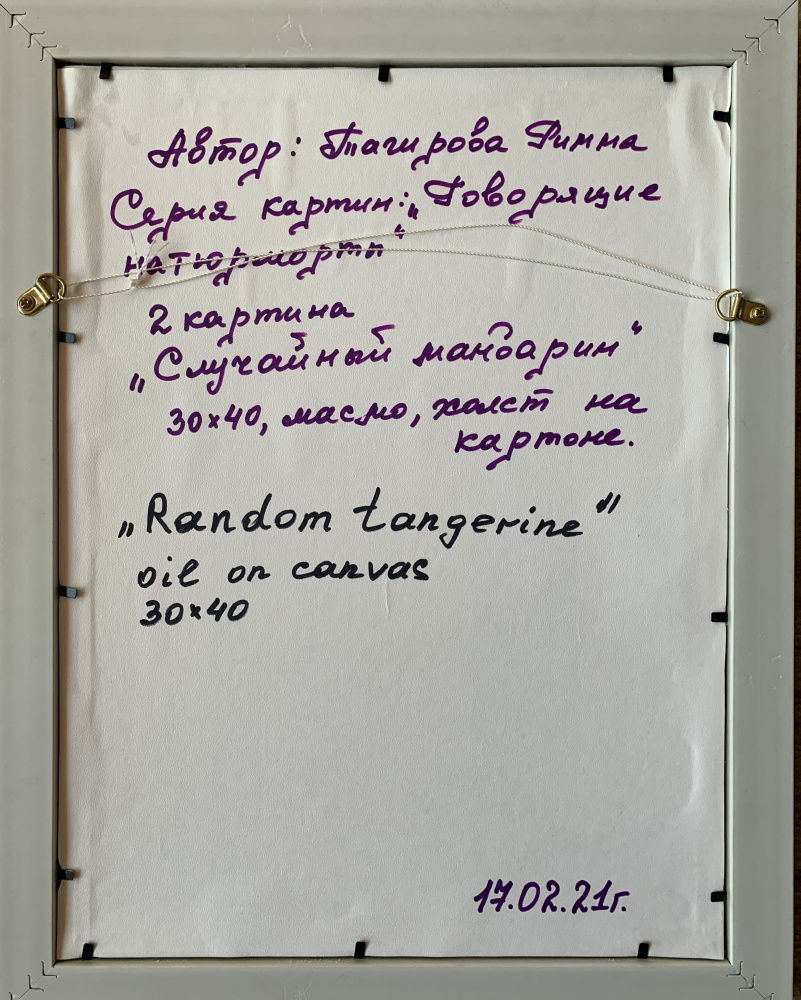 Автор: Тагирова Римма
Серия картин: „Говорящие
натюрморты“
2 картина
„Случайный мандарин“
30×40, масло, холст на
картоне.
„Random tangerine"
oil on canvas
30×40
17.02.21г.